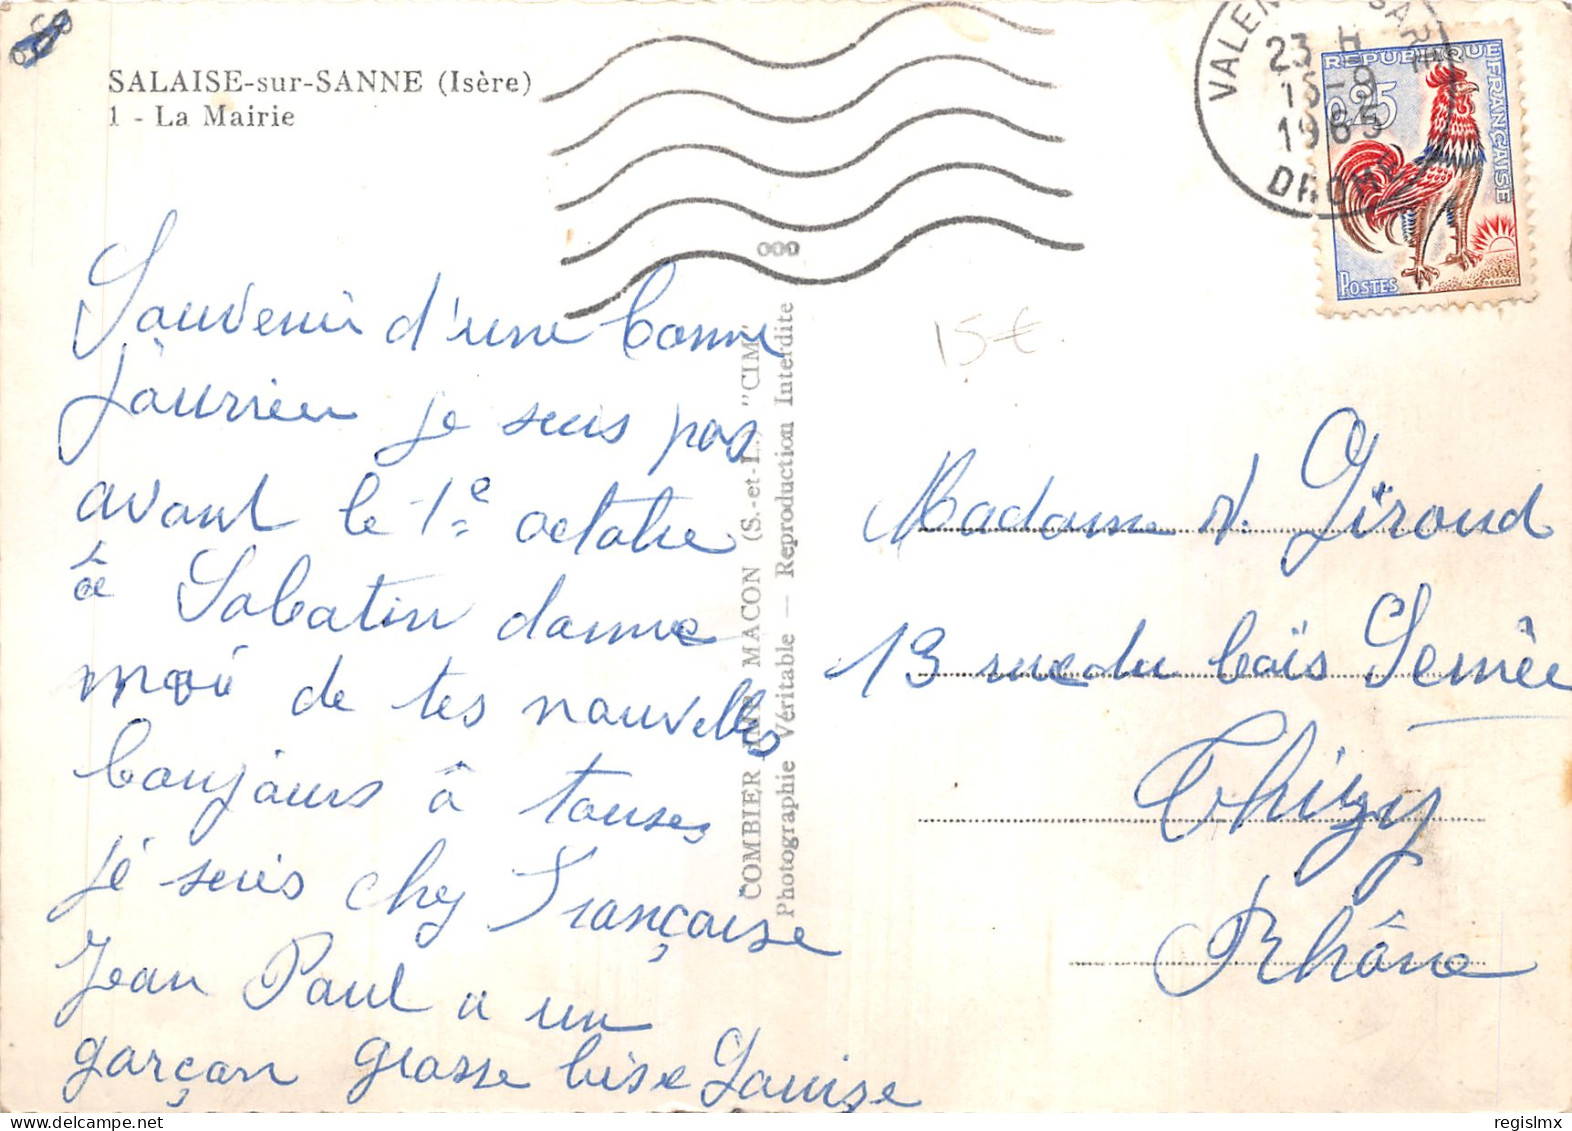 SALAISE-sur-SANNE (Isère)
1 - La Mairie
Souvenir d'une bonne
journeu je suis pas
avant le 1e octobre
à Sabatin donne
moi de tes nouvelles
bonjours â touses
je suis chez Française
Jean Paul a un
garçon grosse bise Louise
COMBIER IMP. MACON (S.-et-L.) "CIM"
Photographie Véritable — Reproduction Interdite
000
23 H
15-9
1965
DROME
REPUBLIQUE
FRANÇAISE
0,25
POSTES
DECARIS
15 €
Madame V. Giroud
13 rue du bois Semée
Thizy
Rhône
regislmx